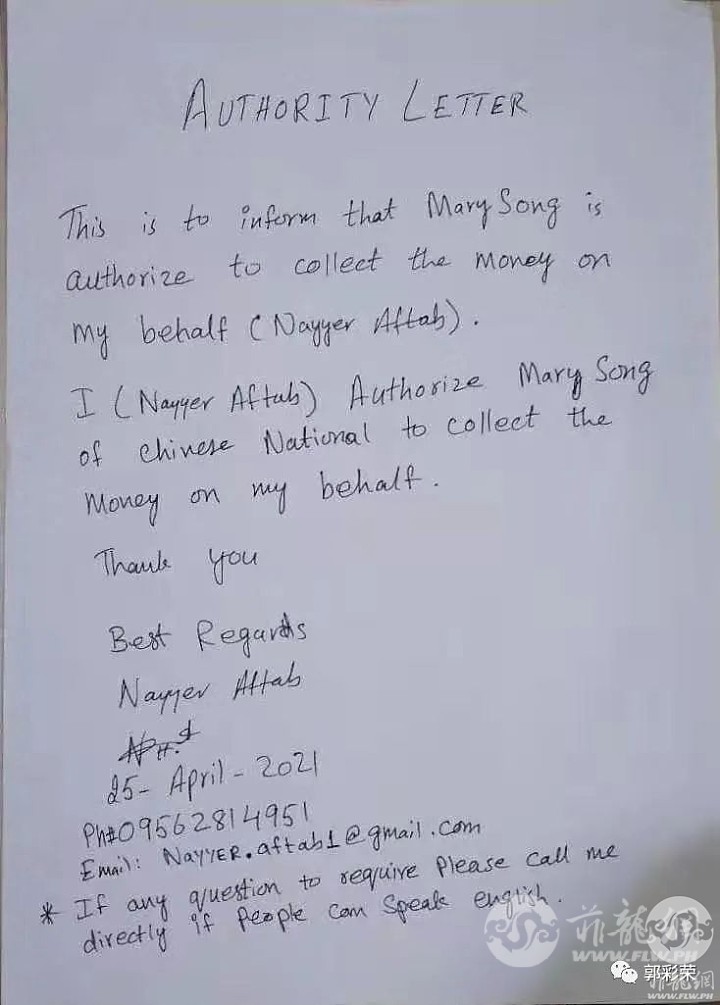 AUTHORITY LETTER
This is to inform that Mary Song is
authorize to collect the money on
my behalf (Nayyer Aftab).
I (Nayyer Aftab) Authorize Mary Song
of chinese National to collect the
Money on my behalf.
Thank you
Best Regards
Nayyer Aftab
25-April-2021
Ph#09562814951
Email: NAYYER.aftab1@gmail.com
* If any question to require Please call me
directly if People can speak english.
菲龍網
WWW.FLW.PH
郭彩荣
菲龍网
WWW.FLW.PH